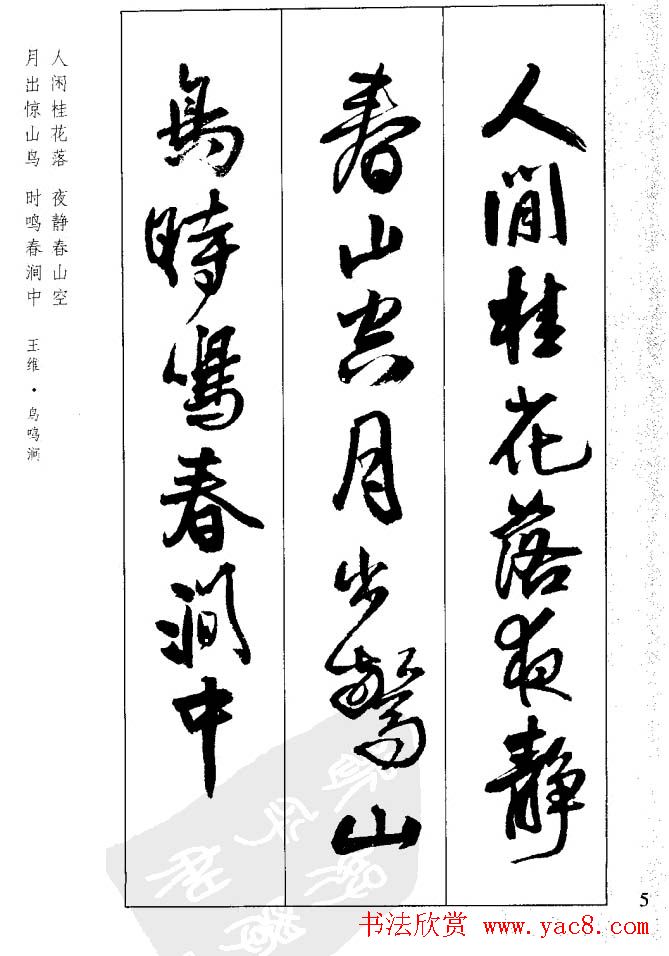 人閒桂花落夜靜
春山空月出驚山
鳥時鳴春澗中
人闲桂花落　夜静春山空
月出惊山鸟　时鸣春涧中　王维·鸟鸣涧
5
书法欣赏 www.yac8.com